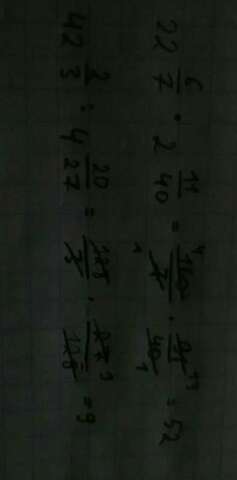 22 6/7 · 2 11/40 = 160/7 · 91/40 = 52
42 2/3 : 4 20/27 = 128/3 · 27/128 = 9